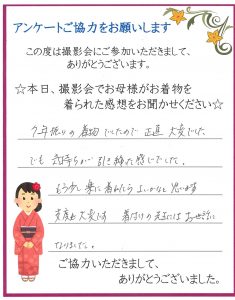 アンケートご協力をお願いします
この度は撮影会にご参加いただきまして、
ありがとうございます。
☆本日、撮影会でお母様がお着物を
着られた感想をお聞かせください☆
年振りの着物でしたので正直大変でした
でも気持ちが引き締った感じでした。
もう少し楽に着れたらよいかなと思います
支度も大変で 着付けの先生にはお世話に
なりました。
ご協力いただきまして、
ありがとうございました。